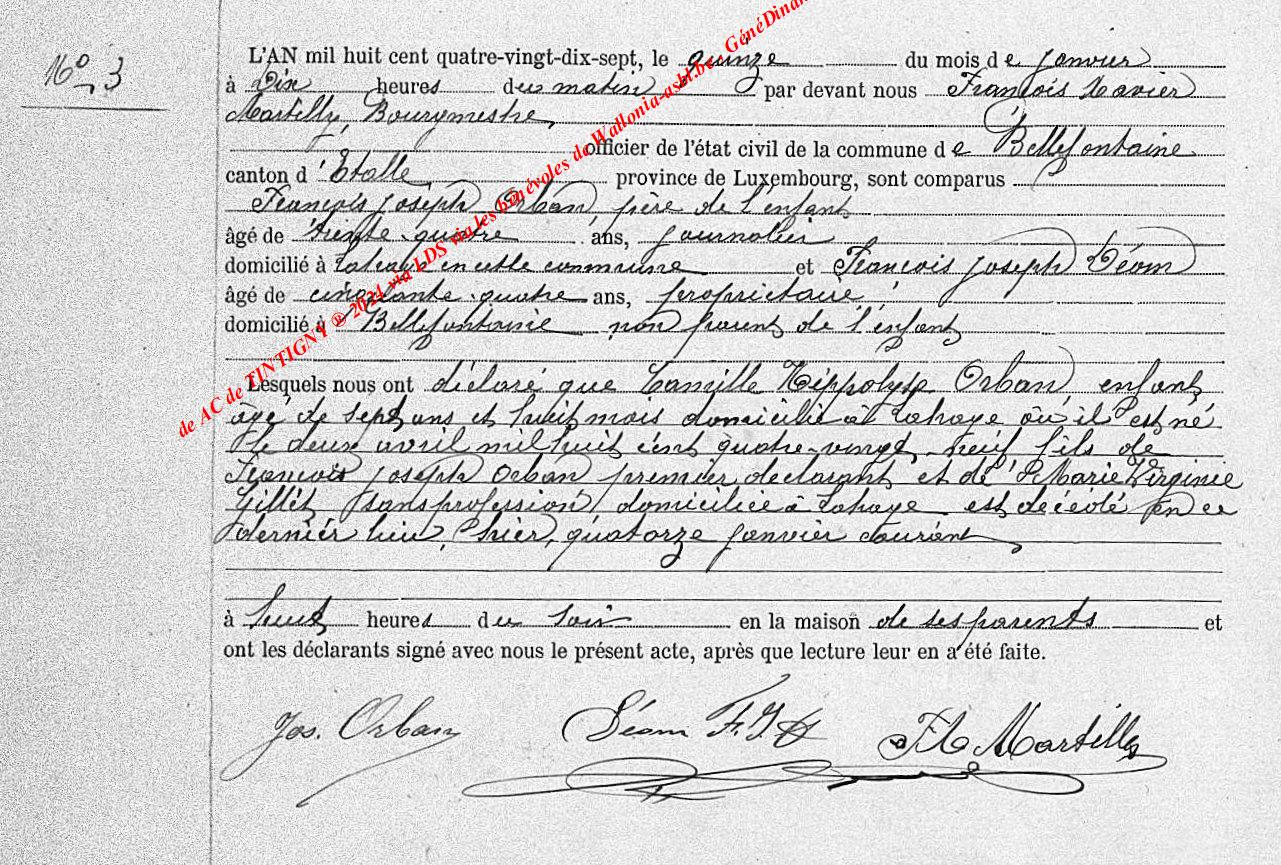 No 3
L'AN mil huit cent quatre-vingt-dix-sept, le quinze du mois de janvier
à Dix heures du matin par devant nous François Xavier
Martilly, Bourgmestre,
officier de l'état civil de la commune de Bellefontaine
canton d'Etalle province de Luxembourg, sont comparus
François Joseph Orban, père de l'enfant
âgé de trente-quatre ans, journalier
domicilié à Lahage en cette commune et François Joseph Déom
âgé de cinquante-quatre ans, propriétaire,
domicilié à Bellefontaine non parent de l'enfant
Lesquels nous ont déclaré que Camille Hippolyte Orban, enfant
âgé de sept ans et huit mois domicilié à Lahage où il est né
le deux avril mil huit cent quatre-vingt-neuf fils de
François Joseph Orban premier déclarant et de Marie Virginie
Gillet sans profession, domiciliée à Lahage est décédé en ce
dernier lieu, hier, quatorze janvier courant
à huit heures du soir en la maison de ses parents et
ont les déclarants signé avec nous le présent acte, après que lecture leur en a été faite.
Jos. Orban Déom F. J. FX Martilly
de AC de TINTIGNY ® 2024 via LDS via les bénévoles de Wallonia-asbl.be - GénéDinan